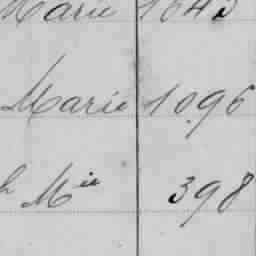 Marie 1643
Marie 1096
h M^ie 398